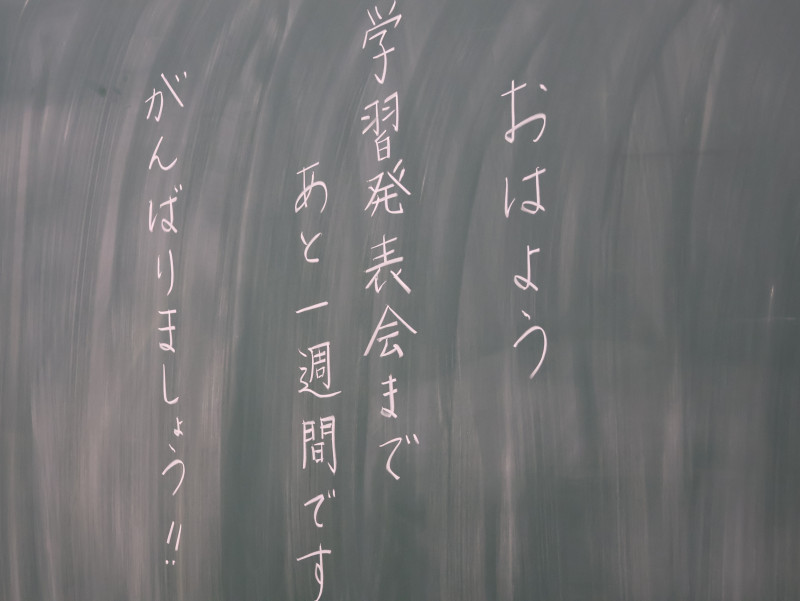 おはよう
学習発表会まで
あと一週間です
がんばりましょう!!